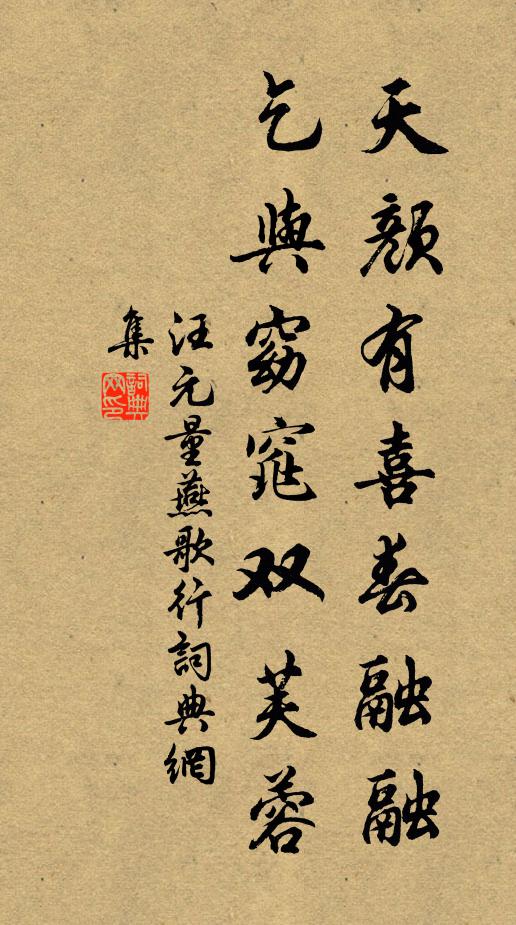 天顏有喜春融融
乞與窈窕双芙蓉
汪元量燕歌行詞典網
集
詞典网印